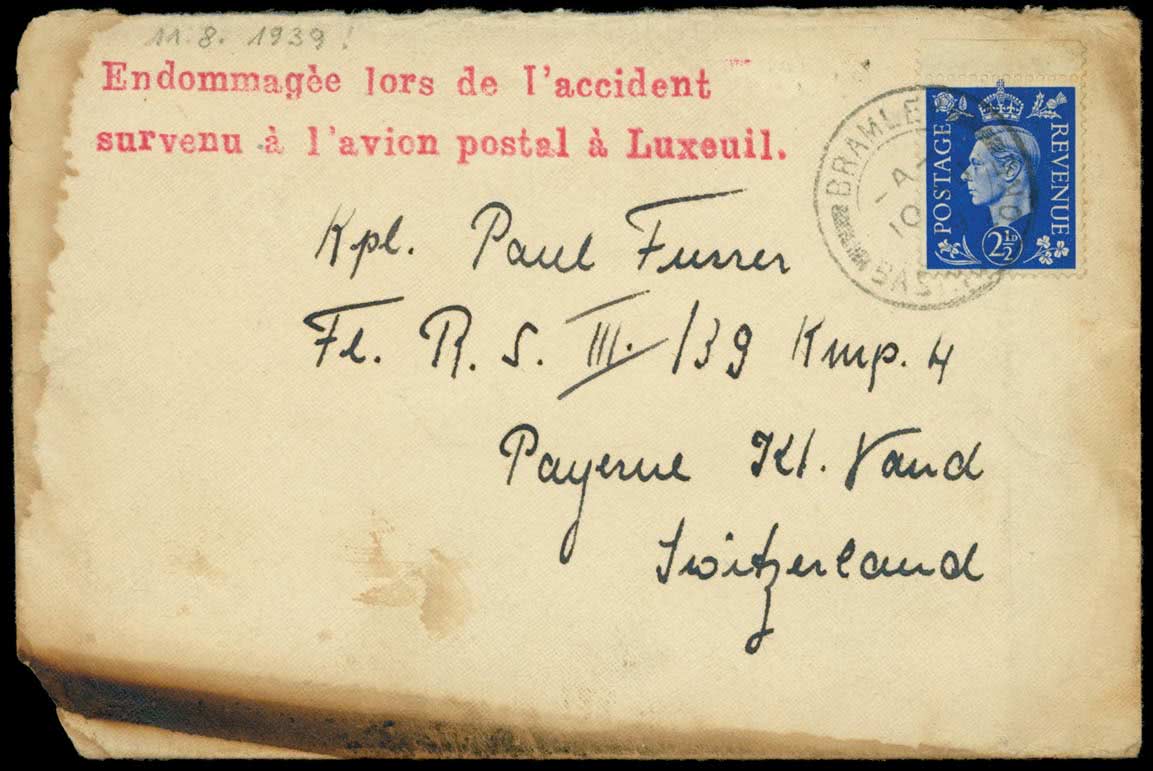 11. 8. 1939!
Endommagèe lors de l'accident
survenu à l'avion postal à Luxeuil.
BRAMLE
A
10
POSTAGE
REVENUE
2½D
Kpl. Paul Furrer
Fl. R. S. III. /39 Kmp. 4
Payerne Kt. Vaud
Switzerland